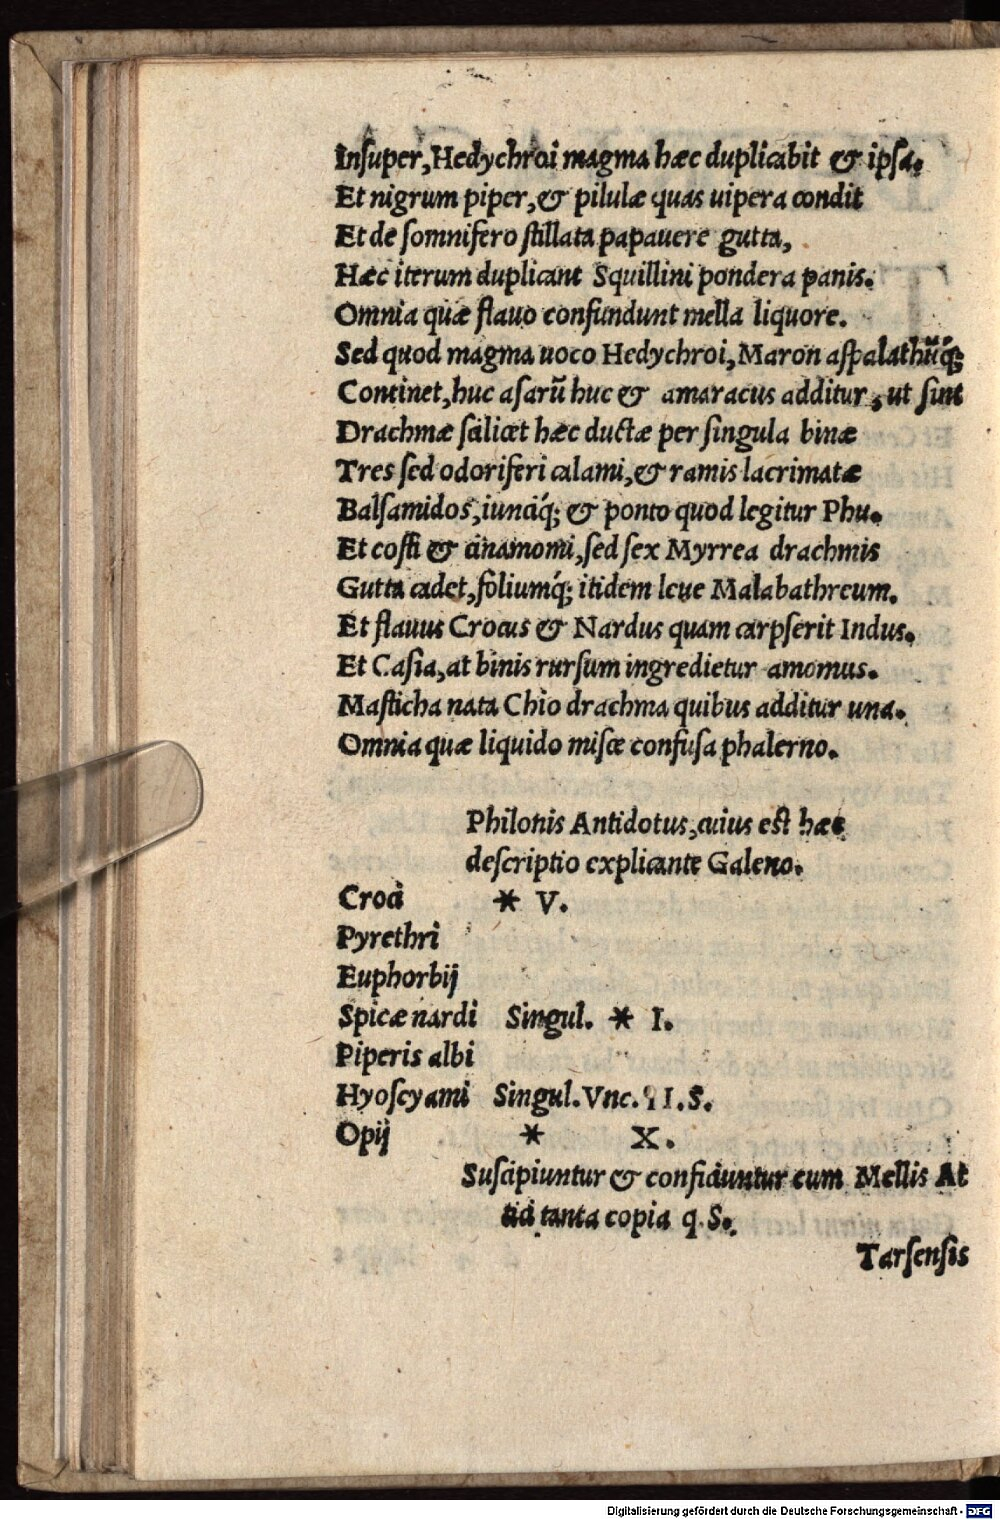 Insuper, Hedychroi magma hæc duplicabit & ipsa.
Et nigrum piper, & pilulæ quas uipera condit
Et de somnifero stillata papauere gutta,
Hæc iterum duplicant Squillini pondera panis.
Omnia quæ flauo confundunt mella liquore.
Sed quod magma uoco Hedychroi, Maron aspalathũq́;
Continet, huc asarũ huc & amaracus additur, ut sint
Drachmæ scilicet hæc ductæ per singula binæ
Tres sed odoriferi calami, & ramis lacrimatæ
Balsamidos, iunciq́; & ponto quod legitur Phu.
Et costi & cinamomi, sed sex Myrrea drachmis
Gutta cadet, foliumq́; itidem leue Malabathreum.
Et flauus Crocus & Nardus quam carpserit Indus.
Et Casia, at binis rursum ingredietur amomus.
Masticha nata Chio drachma quibus additur una.
Omnia quæ liquido misce confusa phalerno.
Philonis Antidotus, cuius est hæc
descriptio explicante Galeno.
Croci * V.
Pyrethri
Euphorbij
Spicæ nardi Singul. * I.
Piperis albi
Hyoscyami Singul. Vnc. I.S.
Opij * X.
Suscipiuntur & conficiuntur cum Mellis At
tici tanta copia q.S.
Tarsensis
Digitalisierung gefördert durch die Deutsche Forschungsgemeinschaft - DFG